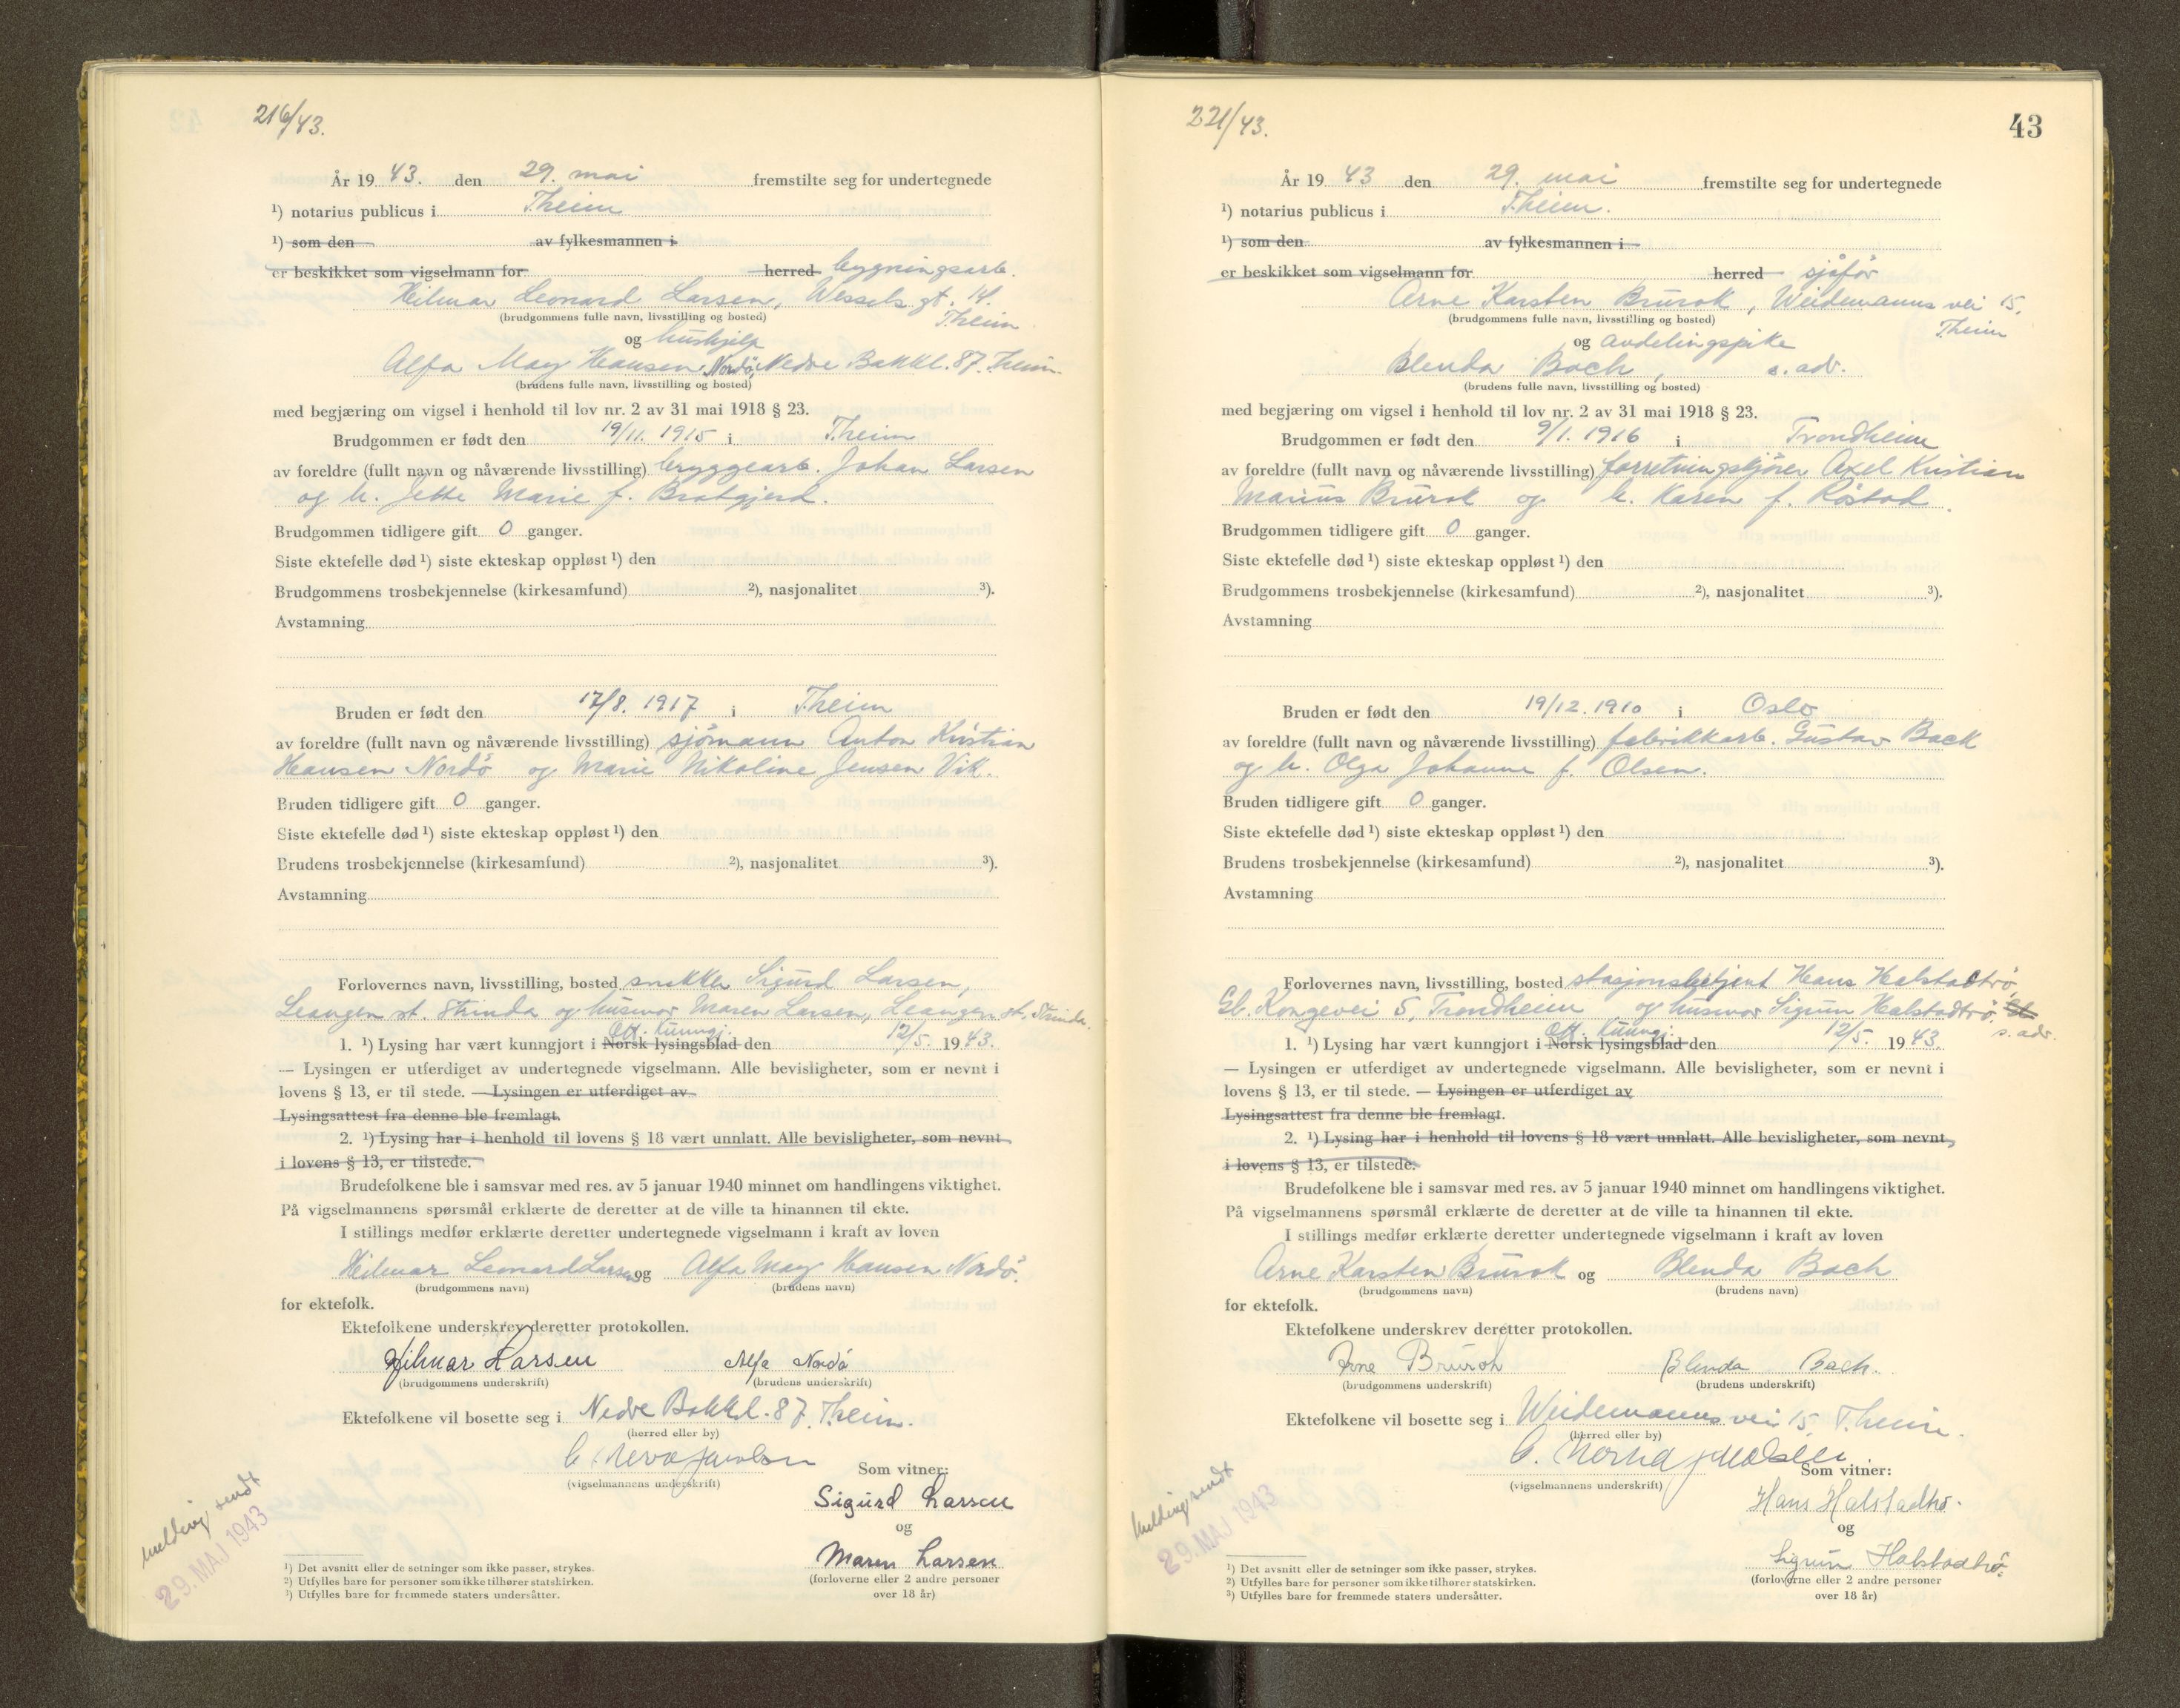 216/43.
År 19 43. den 29. mai fremstilte seg for undertegnede
¹) notarius publicus i T.heim
¹) som den av fylkesmannen i
er beskikket som vigselmann for herred bygningsarb.
Hilmar Leonard Larsen, Wessels gt. 14.
(brudgommens fulle navn, livsstilling og bosted) T.heim
og hushjelp
Alfa May Hansen Nordö, Nedre Bakkl. 87. T.heim.
(brudens fulle navn, livsstilling og bosted)
med begjæring om vigsel i henhold til lov nr. 2 av 31 mai 1918 § 23.
Brudgommen er født den 19/11. 1915 i T.heim
av foreldre (fullt navn og nåværende livsstilling) bryggearb. Johan Larsen
og h. Jette Marie f. Bratgjerd.
Brudgommen tidligere gift 0 ganger.
Siste ektefelle død ¹) siste ekteskap oppløst ¹) den
Brudgommens trosbekjennelse (kirkesamfund) ²), nasjonalitet ³).
Avstamning
Bruden er født den 17/8. 1917 i T.heim
av foreldre (fullt navn og nåværende livsstilling) sjömann Anton Kristian
Hansen Nordö og Marie Nikoline Jensen Vik.
Bruden tidligere gift 0 ganger.
Siste ektefelle død ¹) siste ekteskap oppløst ¹) den
Brudens trosbekjennelse (kirkesamfund) ²), nasjonalitet ³).
Avstamning
Forlovernes navn, livsstilling, bosted snekker Sigurd Larsen,
Leangen st. Strinda og husmor Maren Larsen, Leangen st. Strinda.
Off. Kunngj.
1. ¹) Lysing har vært kunngjort i Norsk lysingsblad den 12/5. 19 43.
— Lysingen er utferdiget av undertegnede vigselmann. Alle bevisligheter, som er nevnt i
lovens § 13, er til stede. — Lysingen er utferdiget av
Lysingsattest fra denne ble fremlagt.
2. ¹) Lysing har i henhold til lovens § 18 vært unnlatt. Alle bevisligheter, som nevnt
i lovens § 13, er tilstede.
Brudefolkene ble i samsvar med res. av 5 januar 1940 minnet om handlingens viktighet.
På vigselmannens spørsmål erklærte de deretter at de ville ta hinannen til ekte.
I stillings medfør erklærte deretter undertegnede vigselmann i kraft av loven
Hilmar Leonard Larsen og Alfa May Hansen Nordö.
(brudgommens navn) (brudens navn)
for ektefolk.
Ektefolkene underskrev deretter protokollen.
Hilmar Larsen Alfa Nordö
(brudgommens underskrift) (brudens underskrift)
Ektefolkene vil bosette seg i Nedre Bakkl. 87, T.heim.
(herred eller by)
(vigselmannens underskrift) Som vitner:
Sigurd Larsen
og
Maren Larsen
(forloverne eller 2 andre personer
over 18 år)
melding sendt
29. MAJ 1943
¹) Det avsnitt eller de setninger som ikke passer, strykes.
²) Utfylles bare for personer som ikke tilhører statskirken.
³) Utfylles bare for fremmede staters undersåtter.
221/43.
43
År 19 43 den 29. mai fremstilte seg for undertegnede
¹) notarius publicus i T.heim.
¹) som den av fylkesmannen i
er beskikket som vigselmann for herred sjåför
Arne Karsten Brurok, Weidemanns vei 15,
(brudgommens fulle navn, livsstilling og bosted) T.heim
og avdelingspike
Blenda Bach, s. adr.
(brudens fulle navn, livsstilling og bosted)
med begjæring om vigsel i henhold til lov nr. 2 av 31 mai 1918 § 23.
Brudgommen er født den 9/1. 1916 i Trondheim
av foreldre (fullt navn og nåværende livsstilling) forretningskjörer Axel Kristian
Marius Brurok og h. Karen f. Röstad.
Brudgommen tidligere gift 0 ganger.
Siste ektefelle død ¹) siste ekteskap oppløst ¹) den
Brudgommens trosbekjennelse (kirkesamfund) ²), nasjonalitet ³).
Avstamning
Bruden er født den 19/12. 1910 i Oslo
av foreldre (fullt navn og nåværende livsstilling) fabrikkarb. Gustav Back
og h. Olga Johanne f. Olsen.
Bruden tidligere gift 0 ganger.
Siste ektefelle død ¹) siste ekteskap oppløst ¹) den
Brudens trosbekjennelse (kirkesamfund) ²), nasjonalitet ³).
Avstamning
Forlovernes navn, livsstilling, bosted stasjonsbetjent Hans Halstadtrö,
Gl. Kongevei 5, Trondheim og husmor Sigrun Halstadtrö,
s. adr.
Off. Kunngj.
1. ¹) Lysing har vært kunngjort i Norsk lysingsblad den 12/5. 19 43.
— Lysingen er utferdiget av undertegnede vigselmann. Alle bevisligheter, som er nevnt i
lovens § 13, er til stede. — Lysingen er utferdiget av
Lysingsattest fra denne ble fremlagt.
2. ¹) Lysing har i henhold til lovens § 18 vært unnlatt. Alle bevisligheter, som nevnt
i lovens § 13, er tilstede.
Brudefolkene ble i samsvar med res. av 5 januar 1940 minnet om handlingens viktighet.
På vigselmannens spørsmål erklærte de deretter at de ville ta hinannen til ekte.
I stillings medfør erklærte deretter undertegnede vigselmann i kraft av loven
Arne Karsten Brurok og Blenda Bach
(brudgommens navn) (brudens navn)
for ektefolk.
Ektefolkene underskrev deretter protokollen.
Arne Brurok Blenda Bach.
(brudgommens underskrift) (brudens underskrift)
Ektefolkene vil bosette seg i Weidemanns vei 15, T.heim.
(herred eller by)
(vigselmannens underskrift) Som vitner:
Hans Halstadtrö.
og
Sigrun Halstadtrö.
(forloverne eller 2 andre personer
over 18 år)
Melding sendt
29. MAJ 1943
¹) Det avsnitt eller de setninger som ikke passer, strykes.
²) Utfylles bare for personer som ikke tilhører statskirken.
³) Utfylles bare for fremmede staters undersåtter.